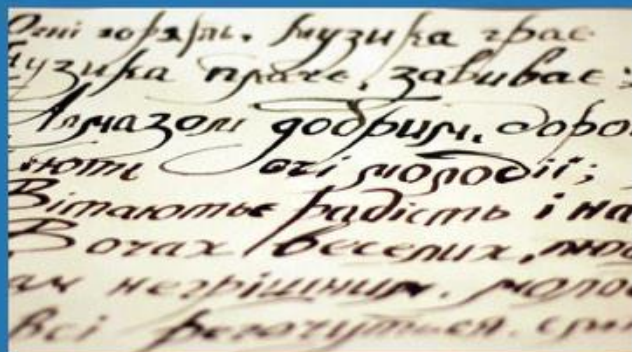 Огні горять, музика грає
Музика плаче, завиває:
Алмазом добрим, доро
яють очі молодії;
радість і на
В очах веселих, люб
ам негрішним, моло
всі регочуться, смі